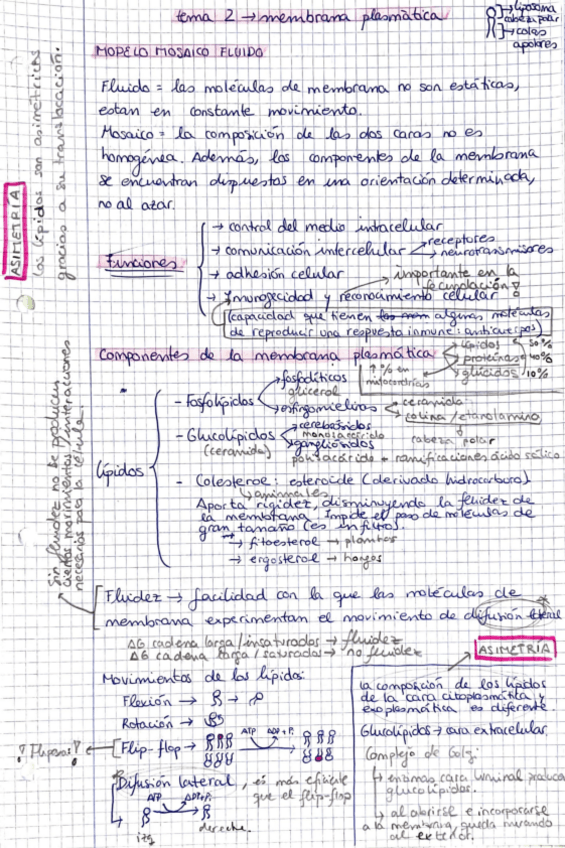 tema 2 → membrana plasmática
liposoma
cabeza polar
colas
apolares
MODELO MOSAICO FLUIDO
Fluido = las moléculas de membrana no son estáticas,
estan en constante movimiento.
Mosaico = la composición de las dos caras no es
homogénea. Además, los componentes de la membrana
se encuentran dispuestos en una orientación determinada,
no al azar.
ASIMETRÍA
Los lípidos son asimétricos
gracias a su translocación.
Funciones
→ control del medio intracelular
→ comunicación intercelular
receptores
neurotransmisores
→ adhesión celular
importante en la
fecundación
→ Inmunogecidad y reconocimiento celular
(capacidad que tienen algunas moléculas
de reproducir una respuesta inmune: anticuerpos)
Componentes de la membrana plasmática
lípidos 50%
proteínas 40%
glúcidos 10%
↑ % en
mitocondrias
lípidos
- Fosfolípidos
glicerol
esfingomielina
ceramida
colina/etanolamina
cabeza polar
- Glucolípidos
(ceramida)
cerebrósidos
monosacárido
gangliósidos
polisacárido + ramificaciones ácido siálico
- Colesterol: esteroide (derivado hidrocarburo).
animales
Aporta rigidez, disminuyendo la fluidez de
la membrana. Impide el paso de moléculas de
gran tamaño (es un filtro).
→ fitoesterol → plantas
→ ergosterol → hongos
Sin fluidez no se producen
ciertos movimientos/interacciones
necesarios para la célula.
Fluidez → facilidad con la que las moléculas de
membrana experimentan el movimiento de difusión lateral
ΔG cadena larga/insaturados → fluidez
ΔG cadena larga/saturados → no fluidez
Movimientos de los lípidos:
Flexión →
Rotación →
Flip-flop →
ATP ADP+Pi
Difusión lateral, es más eficiente
que el flip-flop
ATP ADP+Pi
izq
derecha.
ASIMETRÍA
la composición de los lípidos
de la cara citoplasmática y
exoplasmática es diferente.
Glucolípidos → cara extracelular.
Complejo de Golgi:
↳ enzimas cara luminal producen
glucolípidos.
↳ al abrirse e incorporarse
a la membrana, queda mirando
al exterior.